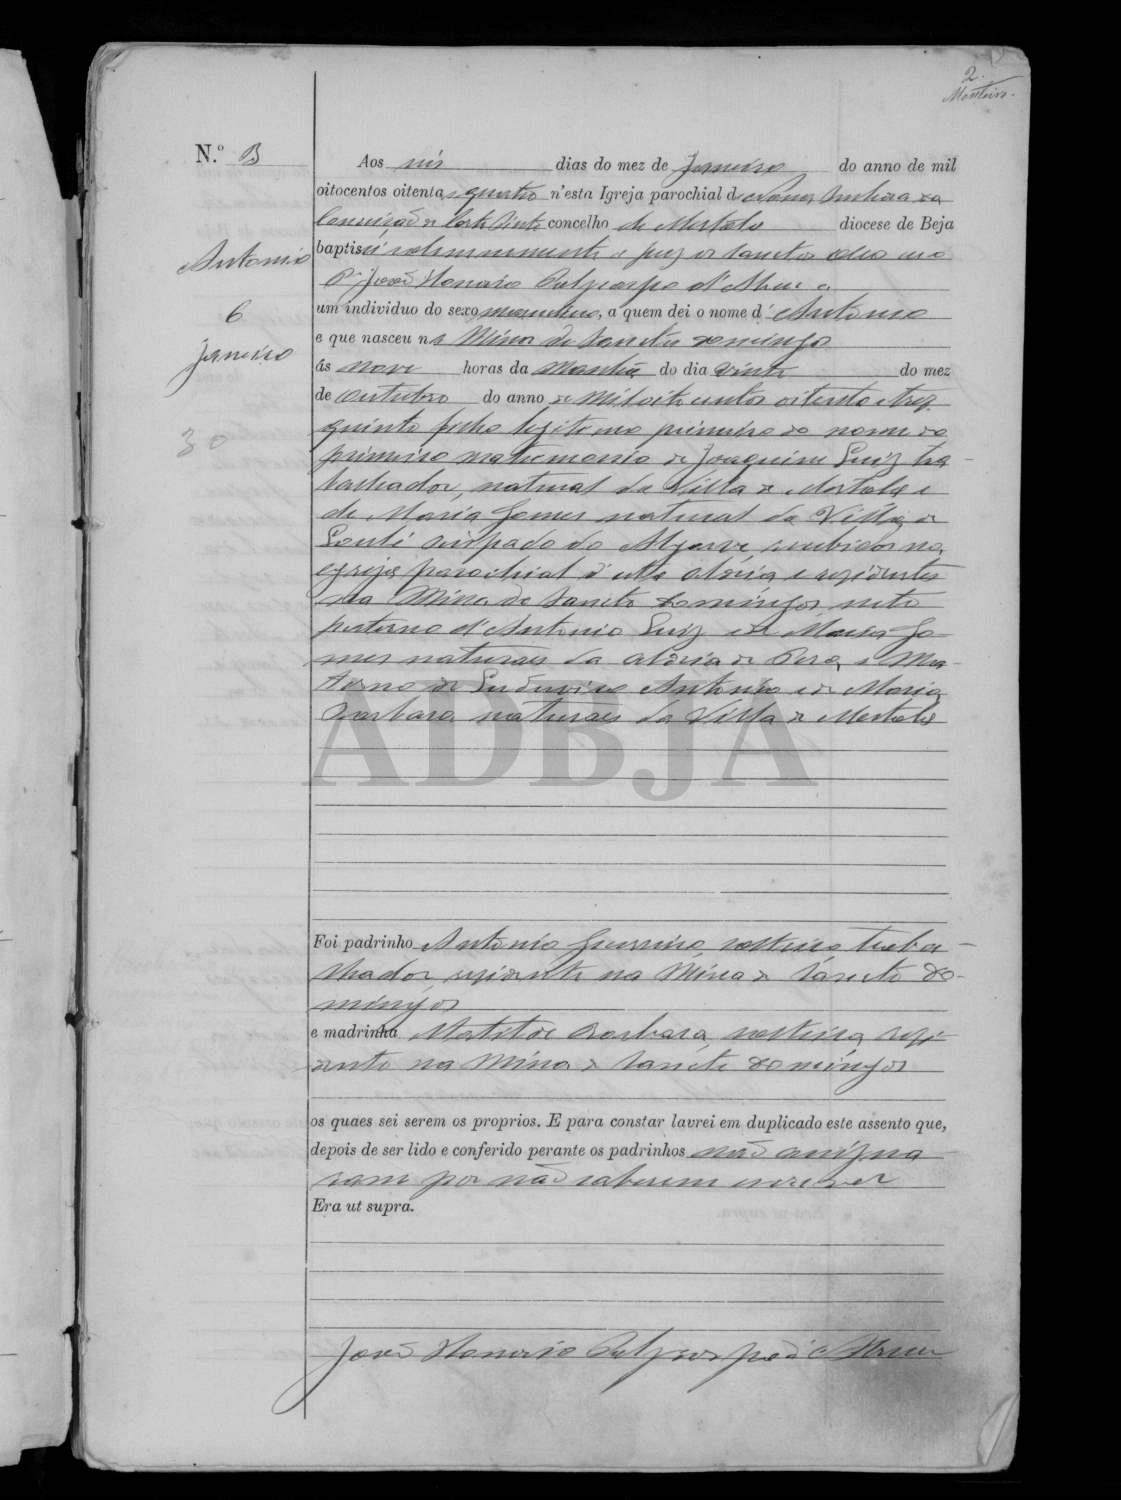 2.
Monteiro.
N.º 3
Antonio
6
Janeiro
30
Aos seis dias do mez de Janeiro do anno de mil
oitocentos oitenta e quatro n'esta Igreja parochial de Nossa Senhora da
Conceição de Corte Pinto concelho de Mertola diocese de Beja
baptisei solemnemente e puz os sanctos oleos eu o
P.e João Honorio
um individuo do sexo masculino, a quem dei o nome d' Antonio
e que nasceu na Mina de Sancto Domingos
ás nove horas da Manhã do dia vinte do mez
de Outubro do anno de Mil oito centos oitenta e trez
quinto filho legitimo primeiro do nome do
primeiro matrimonio de Joaquim Luiz tra-
balhador, natural da Villa de Mertola e
de Maria Gomes natural da Villa de
Loulé Bispado do Algarve, recebidos na
egreja parochial d'esta aldeia e residentes
na Mina de Sancto Domingos, neto
paterno d'Antonio Luiz e de Maria Go-
mes naturaes da aldeia de Pera, e Ma-
terno de Ludovico Antonio e de Maria
Barbara naturaes da Villa de Mertola
ADBJA
Foi padrinho Antonio Guerreiro, solteiro traba-
lhador, residente na Mina de Sancto Do-
mingos
e madrinha Matilde Barbara, solteira resi-
dente na Mina de Sancto Domingos
os quaes sei serem os proprios. E para constar lavrei em duplicado este assento que,
depois de ser lido e conferido perante os padrinhos não assigna-
ram por não saberem escrever
Era ut supra.
João Honorio